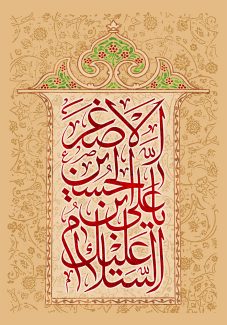 السلام عليك
يا علي بن
الحسين
الاصغر